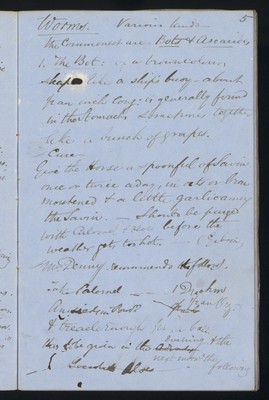 5
Worms. Various kinds —
The Commonest are Bots & Ascarides
1. The Bot: of a brown colour
shape like a ship's buoy - about
an inch long: is generally found
in the stomach & sometimes together
like a bunch of grapes.
Cure
Give the Horse a spoonful of Savin
once or twice a day, in oats or Bran
moistened & a little garlic among
the Savin. — Should be purged
with Calomel & Aloes before the
weather gets too hot. —
Mr Denny recommends the follow
Take Calomel — 1 Drachm
Aniseed in Powdr
& treacle enough for a Ball
to be given in the evening & the
next morng the
following
Aloes